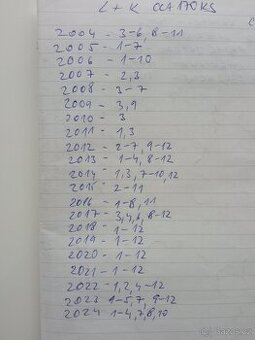 L + K CCA 170 KS
2004 - 3-6, 8-11
2005 - 1-7
2006 - 1-10
2007 - 2,3
2008 - 3-7
2009 - 3,9
2010 - 3
2011 - 1,3
2012 - 2-7, 9-12
2013 - 1-4, 8-12
2014 - 1,3, 7-10, 12
2015 - 2-11
2016 - 1-8, 11
2017 - 3,4,6, 8-12
2018 - 1-12
2019 - 1-12
2020 - 1-12
2021 - 1-12
2022 - 1,2, 4-12
2023 1-5,7, 9-12
2024 - 1-4,7,8,10